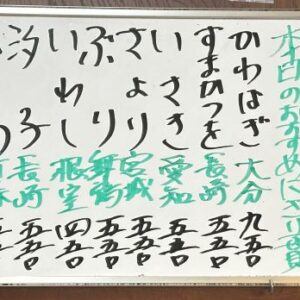 本日のおすすめ
かわはぎ 大分 九五〇
すまかつを 長崎 五五〇
いさき 愛知 五五〇
さより 宮城 五五〇
ぶり 舞鶴 五五〇
いわし 根室 四五〇
汐子 長崎 五五〇